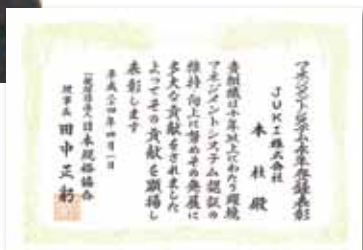 マネジメントシステム永年登録表彰
JUKI株式会社
本社 殿
貴組織は十年以上にわたり環境
マネジメントシステム認証の
維持・向上に努めその発展に
多大な貢献をされました
よってその貢献を顕揚し
表彰します
平成二十四年四月一日
一般財団法人日本規格協会
理事長 田中正躬